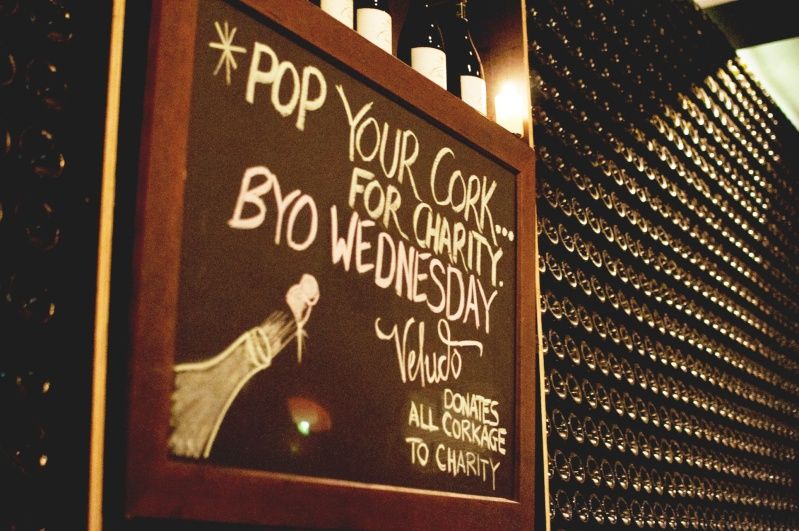 *POP YOUR CORK...
FOR CHARITY.
BYO WEDNESDAY
Veludo
DONATES
ALL CORKAGE
TO CHARITY